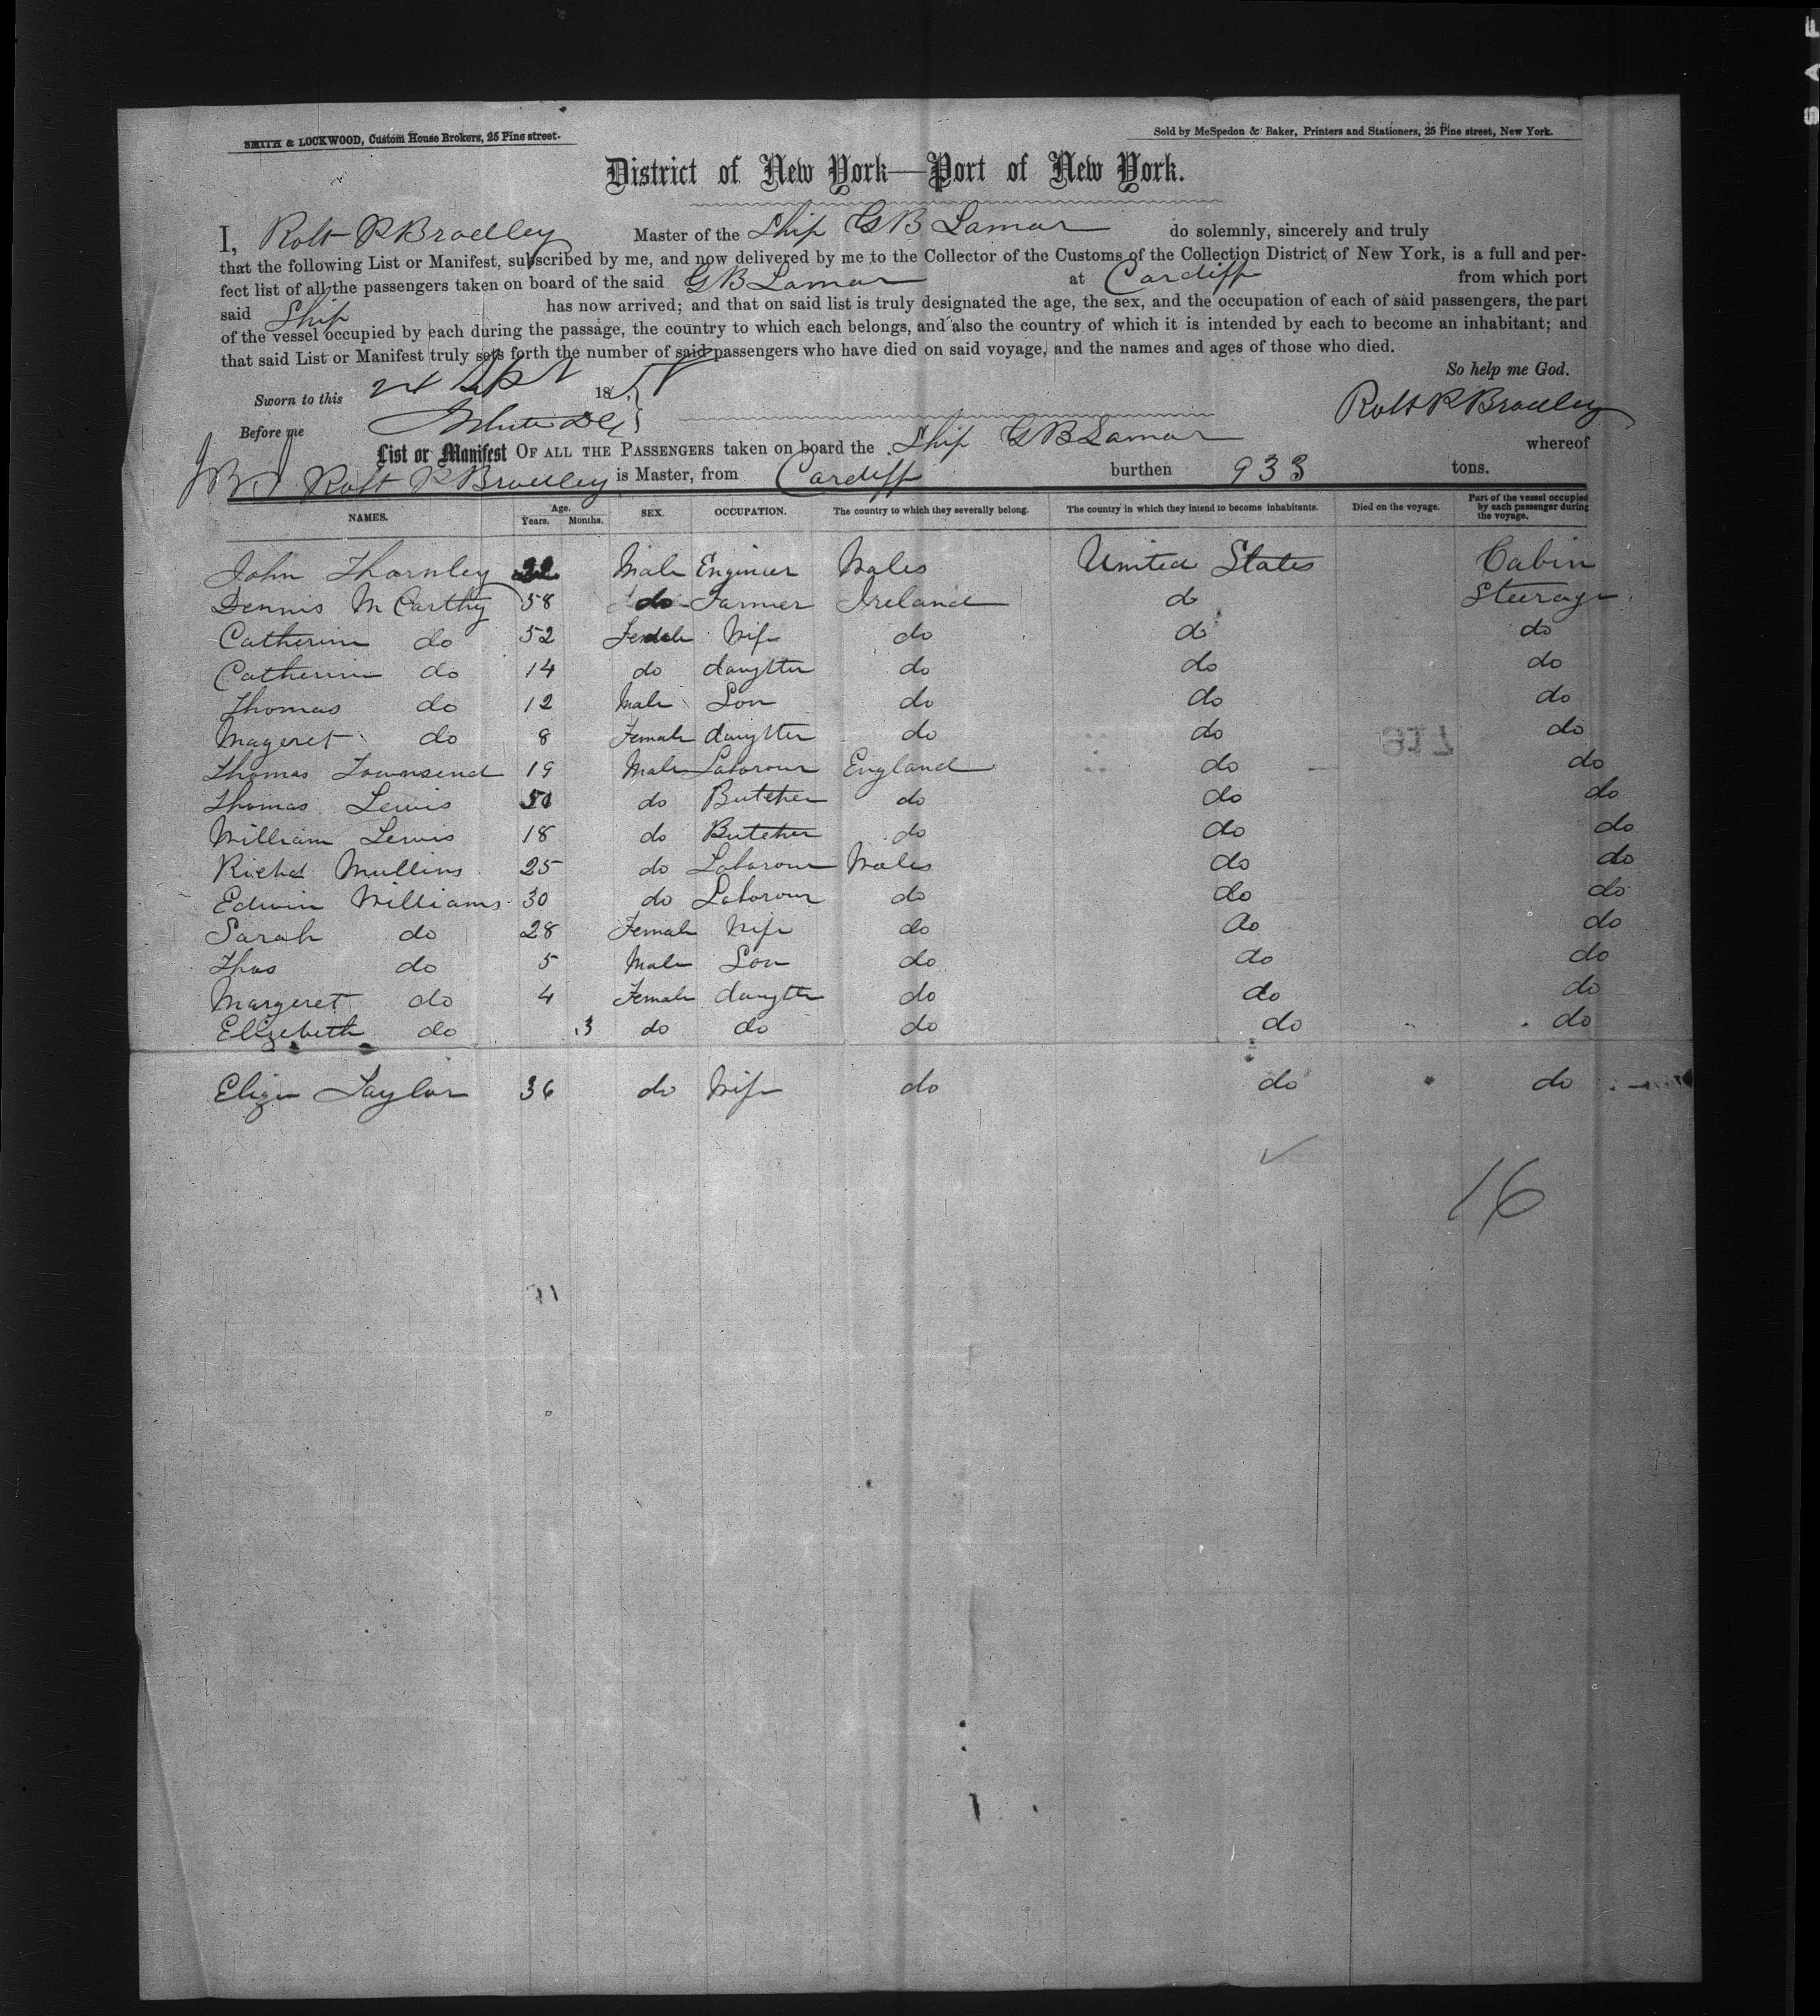 SMITH & LOCKWOOD, Custom House Brokers, 25 Pine street.
Sold by McSpedon & Baker, Printers and Stationers, 25 Pine street, New York.
District of New York—Port of New York.
I, Robt R Bradley Master of the Ship G B Lamar do solemnly, sincerely and truly
that the following List or Manifest, subscribed by me, and now delivered by me to the Collector of the Customs of the Collection District of New York, is a full and per-
fect list of all the passengers taken on board of the said G B Lamar at Cardiff from which port
said Ship has now arrived; and that on said list is truly designated the age, the sex, and the occupation of each of said passengers, the part
of the vessel occupied by each during the passage, the country to which each belongs, and also the country of which it is intended by each to become an inhabitant; and
that said List or Manifest truly sets forth the number of said passengers who have died on said voyage, and the names and ages of those who died.
So help me God.
Sworn to this 24 Sept 1858
Robt R Bradley
Before me
List or Manifest OF ALL THE PASSENGERS taken on board the Ship G B Lamar whereof
Robt R Bradley is Master, from Cardiff burthen 933 tons.
NAMES. Age. Years. Months. SEX. OCCUPATION. The country to which they severally belong. The country in which they intend to become inhabitants. Died on the voyage. Part of the vessel occupied by each passenger during the voyage.
John Thornley 22 Male Engineer Wales United States Cabin
Dennis McCarthy 58 do Farmer Ireland do Steerage
Catherine do 52 Female Wife do do do
Catherine do 14 do daughter do do do
Thomas do 12 Male Son do do do
Mageret do 8 Female daughter do do do
Thomas Townsend 19 Male Labourour England do do
Thomas Lewis 50 do Butcher do do do
William Lewis 18 do Butcher do do do
Richd Mullins 25 do Labourour Wales do do
Edwin Williams 30 do Laborour do do do
Sarah do 28 Female Wife do do do
Thos do 5 Male Son do do do
Margeret do 4 Female daughter do do do
Elizebeth do 3 do do do do do
Eliza Taylor 36 do Wife do do do
16